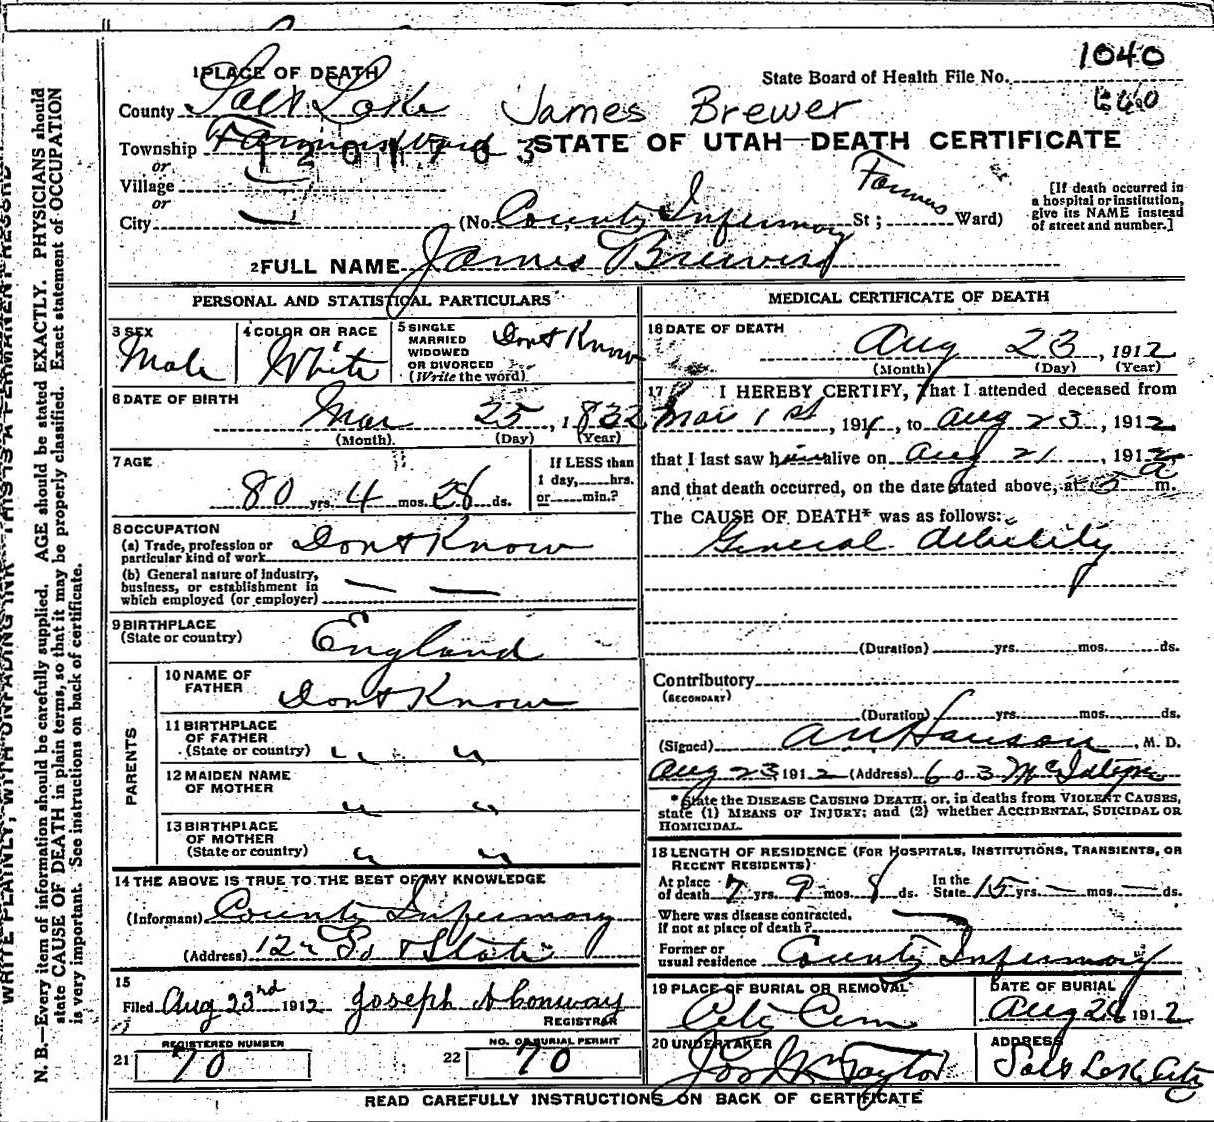 1040
1 PLACE OF DEATH
State Board of Health File No.
County Salt Lake James Brewer
Township Farmers Ward 1201703 STATE OF UTAH—DEATH CERTIFICATE
or
Village
or
City (No. County Infirmary St; Farmers Ward)
[If death occurred in
a hospital or institution,
give its NAME instead
of street and number.]
2 FULL NAME James Brewer
PERSONAL AND STATISTICAL PARTICULARS
3 SEX
Male
4 COLOR OR RACE
White
5 SINGLE
MARRIED
WIDOWED
OR DIVORCED
(Write the word)
Dont Know
6 DATE OF BIRTH
Mar 25, 1832
(Month) (Day) (Year)
7 AGE
80 yrs. 4 mos. 28 ds.
If LESS than
1 day,......hrs.
or......min.?
8 OCCUPATION
(a) Trade, profession or
particular kind of work Dont Know
(b) General nature of industry,
business, or establishment in
which employed (or employer)
9 BIRTHPLACE
(State or country) England
PARENTS
10 NAME OF
FATHER Dont Know
11 BIRTHPLACE
OF FATHER
(State or country) " "
12 MAIDEN NAME
OF MOTHER " "
13 BIRTHPLACE
OF MOTHER
(State or country) " "
14 THE ABOVE IS TRUE TO THE BEST OF MY KNOWLEDGE
(Informant) County Infirmary
(Address) 12th So & State
15
Filed Aug 23rd 1912 Joseph A Conway
REGISTRAR
21 REGISTERED NUMBER
70
22 NO. OF BURIAL PERMIT
70
MEDICAL CERTIFICATE OF DEATH
16 DATE OF DEATH
Aug 23, 1912
(Month) (Day) (Year)
17 I HEREBY CERTIFY, That I attended deceased from
Mar 1st, 191, to Aug 23, 1912
that I last saw him alive on Aug 21, 1912
and that death occurred, on the date stated above, at 5 a m.
The CAUSE OF DEATH* was as follows:
General debility
(Duration) yrs. mos. ds.
Contributory
(SECONDARY)
(Duration) yrs. mos. ds.
(Signed) Hanson, M. D.
Aug 23 1912 (Address) 603 McIntyre
*State the DISEASE CAUSING DEATH, or, in deaths from VIOLENT CAUSES,
state (1) MEANS OF INJURY; and (2) whether ACCIDENTAL, SUICIDAL OR
HOMICIDAL.
18 LENGTH OF RESIDENCE (FOR HOSPITALS, INSTITUTIONS, TRANSIENTS, OR
RECENT RESIDENTS)
At place of death 7 yrs. 9 mos. 8 ds. In the State 15 yrs. — mos. — ds.
Where was disease contracted,
if not at place of death?
Former or
usual residence County Infirmary
19 PLACE OF BURIAL OR REMOVAL
City Cem
DATE OF BURIAL
Aug 1912
20 UNDERTAKER
Jos Wm Taylor
ADDRESS
Salt Lake City
READ CAREFULLY INSTRUCTIONS ON BACK OF CERTIFICATE
WRITE PLAINLY, WITH UNFADING INK—THIS IS A PERMANENT RECORD
N. B.—Every item of information should be carefully supplied. AGE should be stated EXACTLY. PHYSICIANS should
state CAUSE OF DEATH in plain terms, so that it may be properly classified. Exact statement of OCCUPATION
is very important. See instructions on back of certificate.